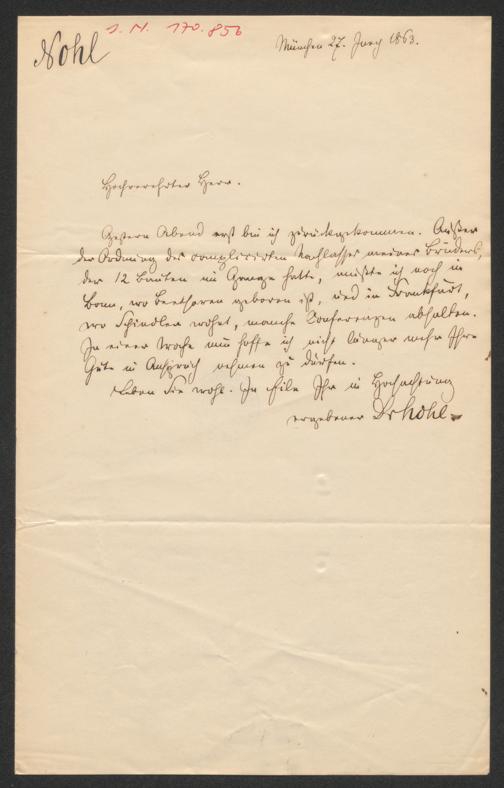 Nohl
J. N. 170.856
München 27. Juny 1863.
Hochverehrter Herr.
Gestern Abend erst bin ich zurückgekommen. Außer
der Ordnung des complicirten Nachlasses meines Bruders,
der 12 Bauten im Gange hatte, mußte ich noch in
Bonn, wo Beethoven geboren ist, und in Frankfurt,
wo Schindler wohnt, manche Conferenzen abhalten.
In einer Woche nun hoffe ich nicht länger mehr Ihre
Güte in Anspruch nehmen zu dürfen.
Leben Sie wohl. In Eile Ihr in Hochachtung
ergebener Dr Nohl.